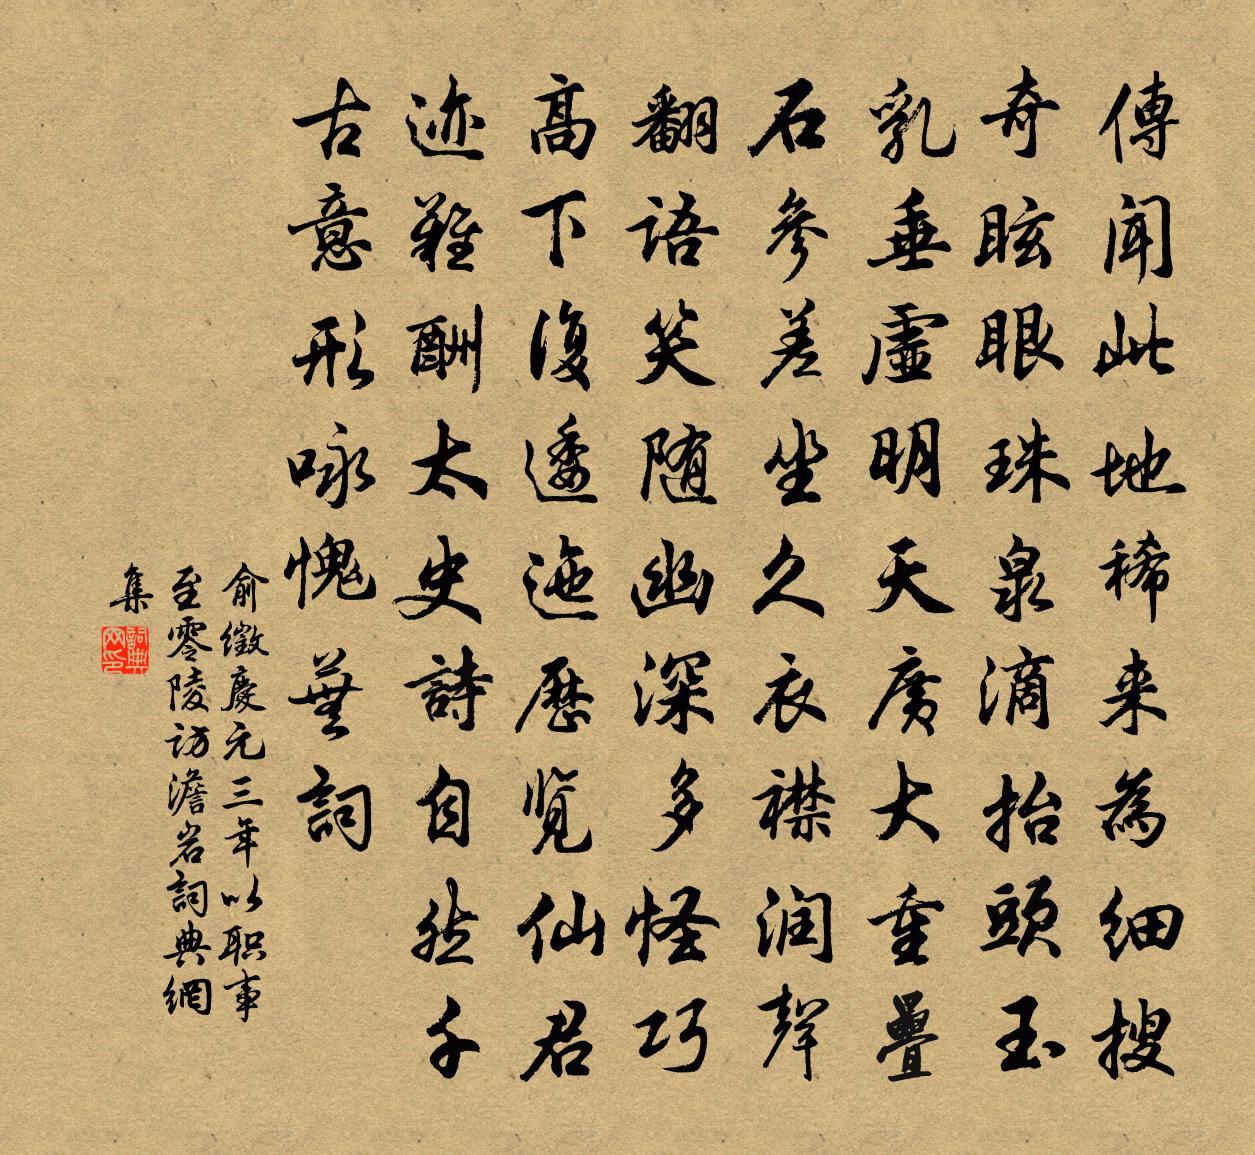 傳聞此地稀来為細搜
奇眩眼珠泉滴抬頭玉
乳垂虛明天廣大重疊
石參差坐久衣襟润聲
翻語笑随幽深多怪巧
高下復逶迤歷览仙君
迹難酬太史詩自然千
古意形咏愧蕪詞
俞徵慶元三年以职事
至零陵访澹岩詞典網
集
詞典网印